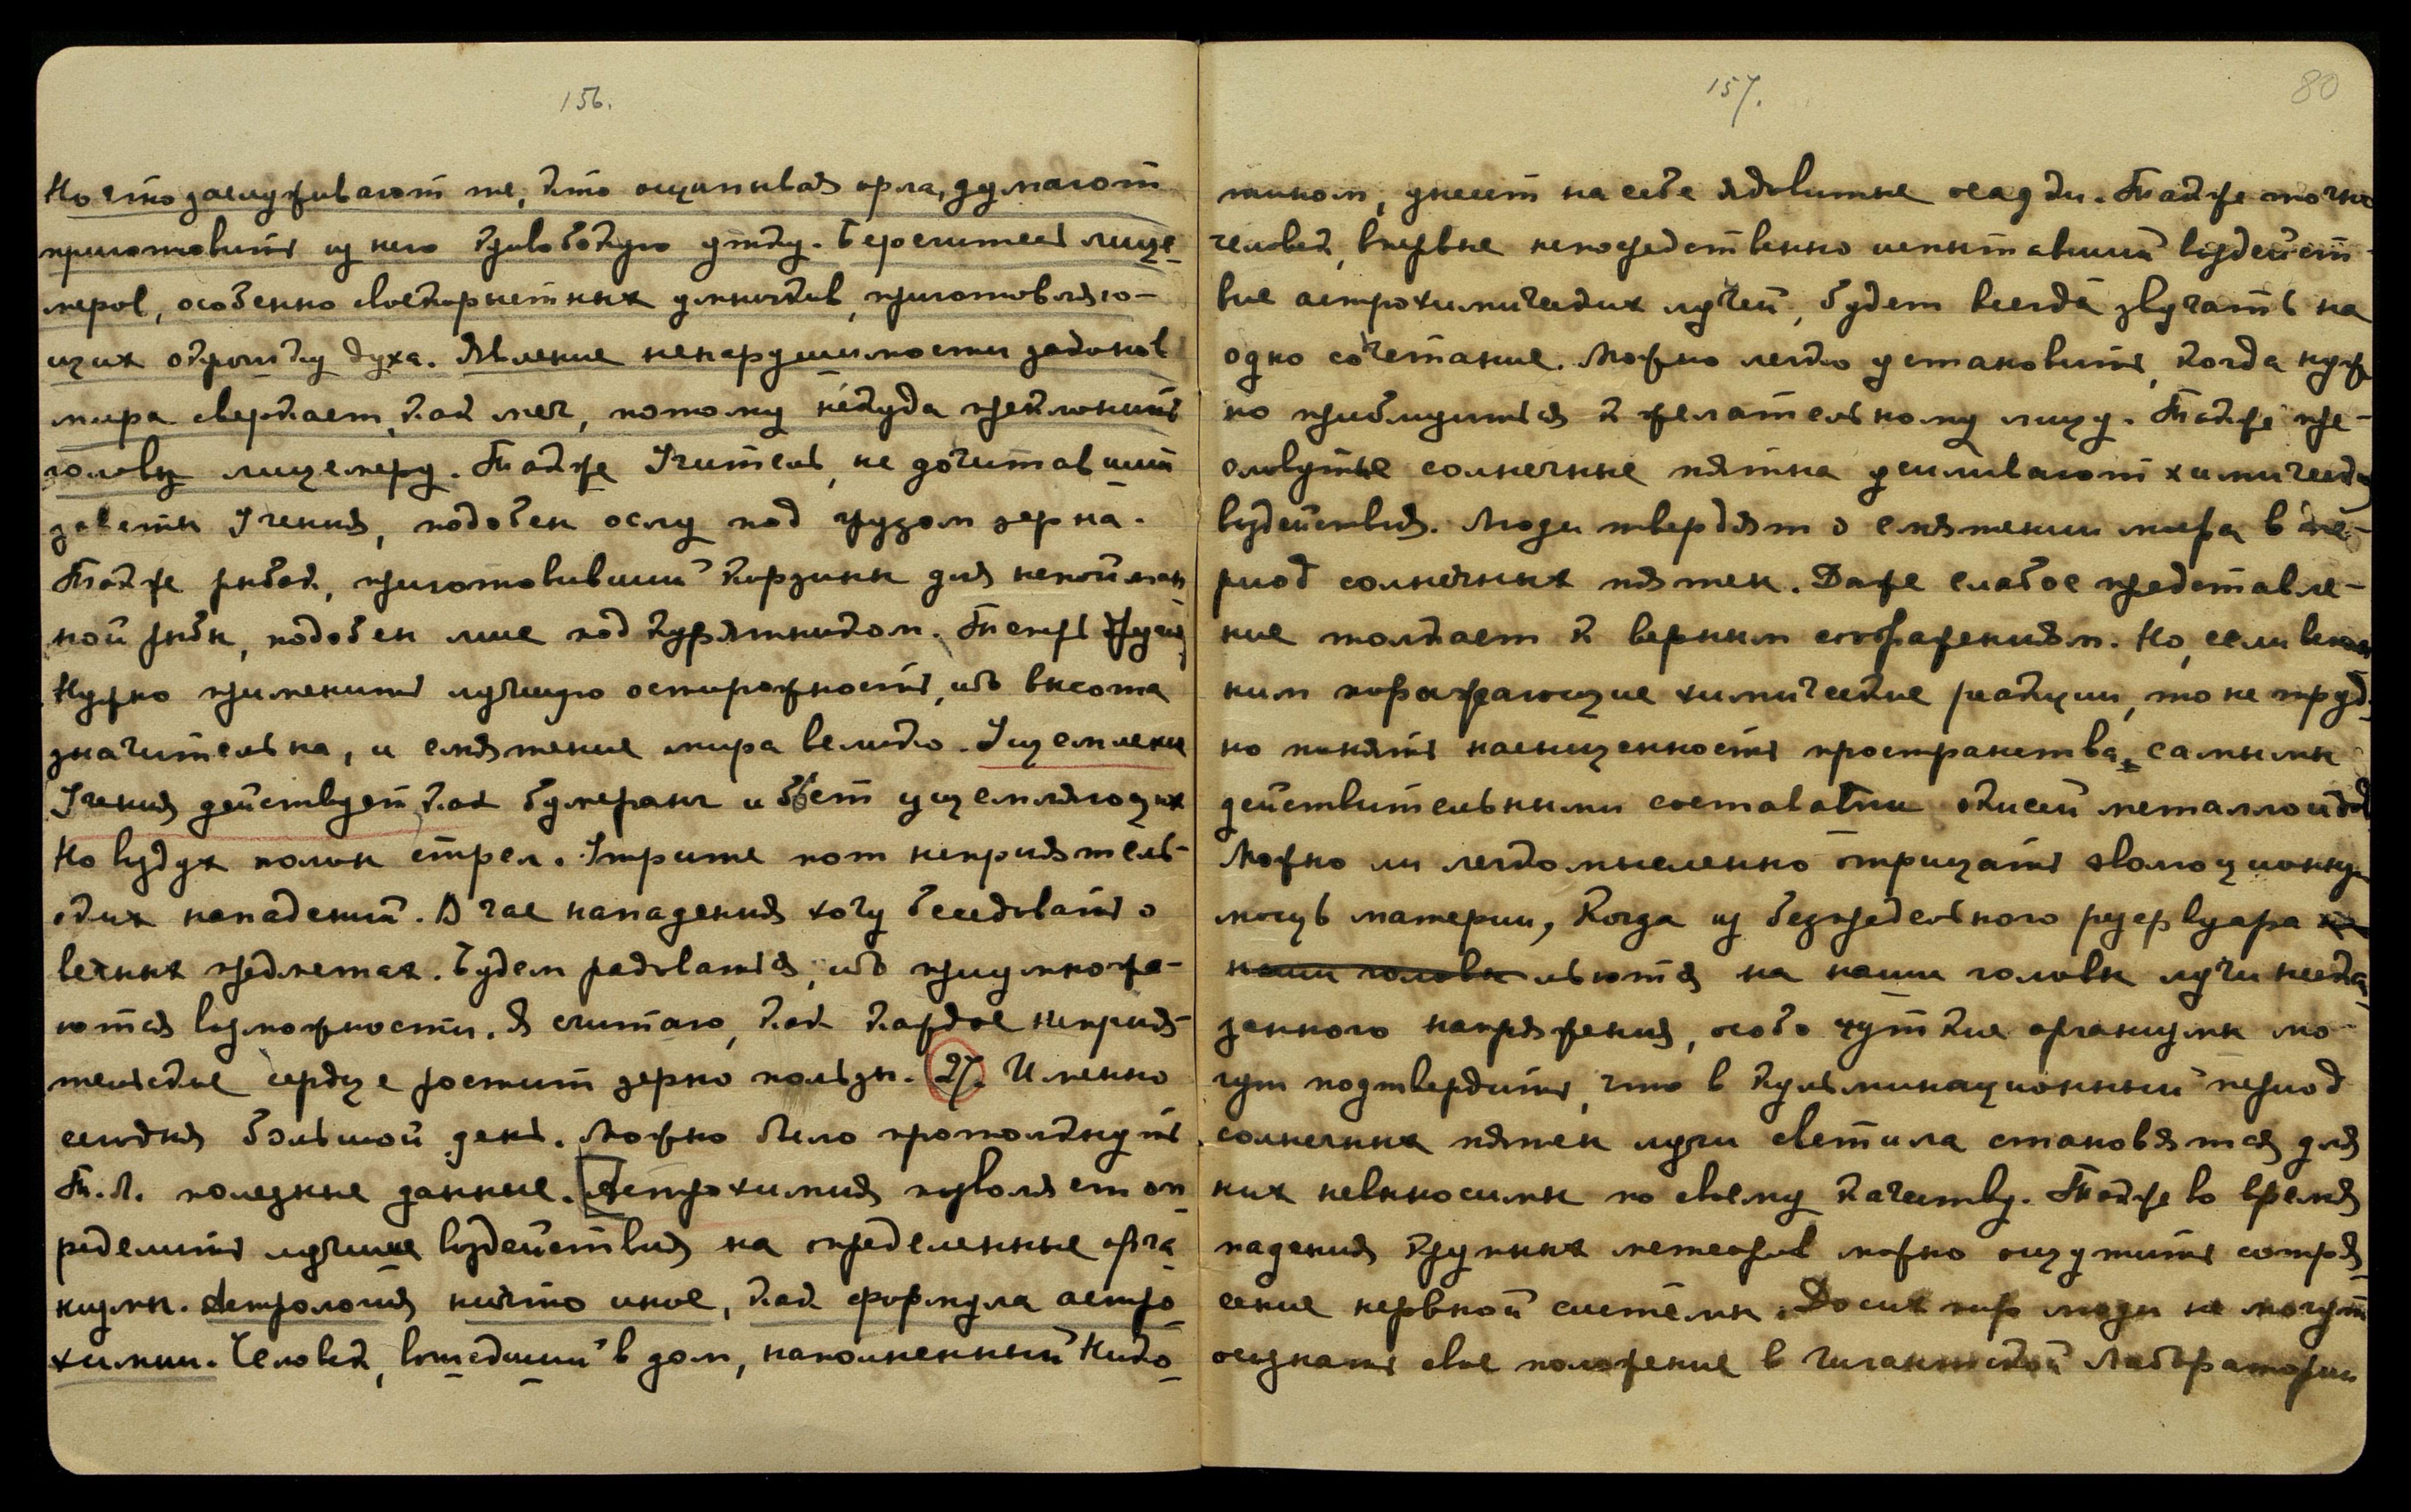 156.
Но что заслуживают те, кто ощипывая орла, думают
приготовить из него кривобокую утку. Берегитесь лице-
меров, особенно своекорыстных умников, приготовляю-
щих окрошку духа. Явление ненарушимости законов
мира сверкает, как меч, потому некуда преклонить
голову лицемеру. Также Учитель, не дочитавший
заветы Учения, подобен ослу под грузом зерна.
Также рыбак, приготовивший корзины для непойман-
ной рыбы, подобен лисе под курятником. Теперь другое,
Нужно применить лучшую осторожность, ибо высота
значительна, и смятение мира велико. Ущемление
Учения действует, как бумеранг и бьет ущемляющих
Но воздух полон стрел. Утрите пот неприятель-
ских нападений. В час нападения хочу беседовать о
вечных предметах. Будем радоваться, ибо приумножа-
ются возможности. Я считаю, как каждое неприя-
тельское сердце ростит зерно пользы. 27. Именно
сегодня большой день. Можно было протолкнуть
Т.Л. полезные данные. Астрохимия позволяет оп-
ределить лучшие воздействия на определенные орга-
низмы. Астрология ничто иное, как формула астро-
химии. Человек, вошедший в дом, наполненный Нико-
157.
80
тином, унесет на себе ядовитые осадки. Также точно
человек, впервые непосредственно испытавший воздейст-
вие астрохимических лучей, будет всегда звучать на
одно сочетание. Можно легко установить, когда нуж
но приблизиться к желательному лицу. Также пре-
словутые солнечные пятна усиливают химические
воздействия. Люди твердят о смятении мира в пе-
риод солнечных пятен. Даже слабое представле-
ние толкает к верным соображениям. Но, если вспом
ним поражающие химические реакции, то не труд-
но понять насыщенность пространства самыми
действительными составами окисей металлоидов
Можно ли легкомысленно отрицать эволюционную
мощь материи, когда из безпредельного резервуара на
наши головы льются на наши головы лучи неска-
занного напряжения, особо чуткие организмы мо-
гут подтвердить, что в кульминационный период
солнечных пятен лучи светила становятся для
них невыносимы по своему качеству. Также во время
падения крупных метеоров можно ощутить сотря-
сение нервной системы. До сих пор люди не могут
осознать свое положение в гигантской Лаборатории